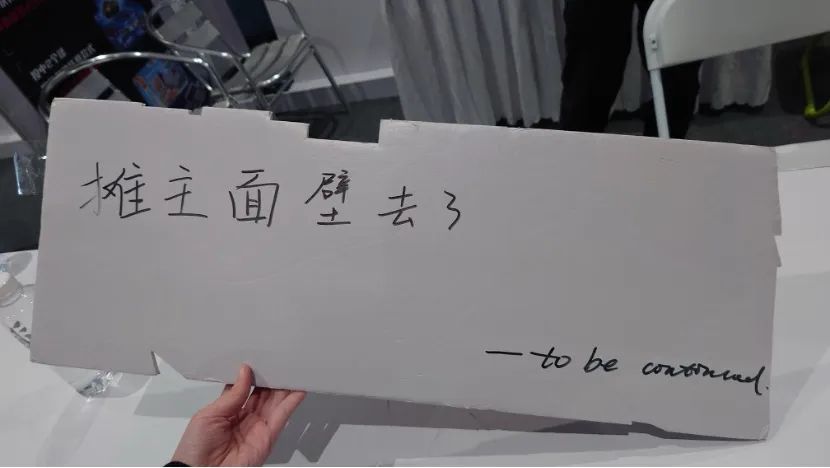 摊主面壁去了
— to be continued.